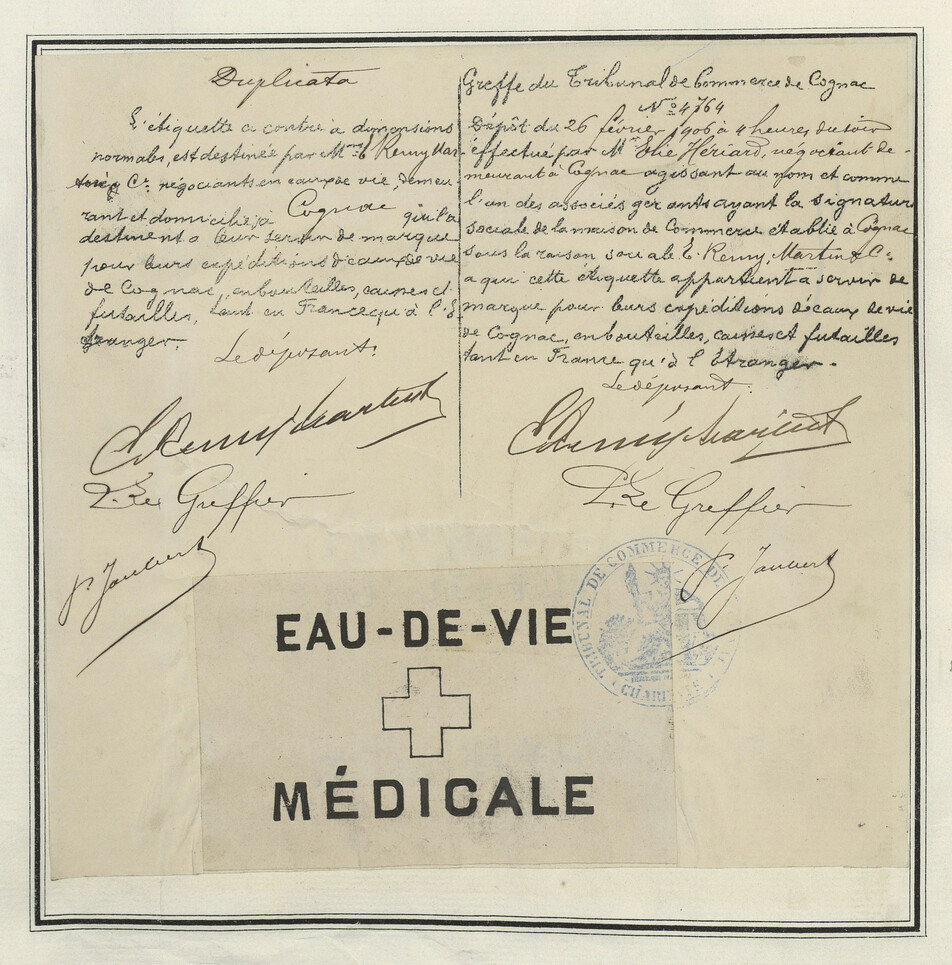 Duplicata
L'étiquette ci contre à dimensions
normales, est destinée par M^rs E. Remy Mar
tin & C^ie négociants en eaux de vie, demeu
rant et domiciliés à Cognac qui la
destinent à leur servir de marque
pour leurs expéditions d'eaux de vie
de Cognac, en bouteilles, caisses et
futailles, tant en France qu'à l'é
tranger.
Le déposant.
E. Remy Martin & C
Le Greffier
P. Joubert
Greffe du Tribunal de Commerce de Cognac
N° 4764
Dépôt du 26 février 1906 à 4 heures du soir
éffectué par M Hériard, négociant de-
meurant à Cognac agissant au nom et comme
l'un des associés gérants ayant la signature
sociale de la maison de Commerce établie à Cognac
sous la raison sociale E. Remy. Martin & C^ie
a qui cette étiquette appartient à servir de
marque pour leurs expéditions d'eaux de vie
de Cognac, en bouteilles, caisses et futailles
tant en France qu'à l'étranger.
Le déposant.
E. Remy Martin & C
Le Greffier
P. Joubert
TRIBUNAL DE COMMERCE DE
CHARENTE
EAU-DE-VIE
MÉDICALE